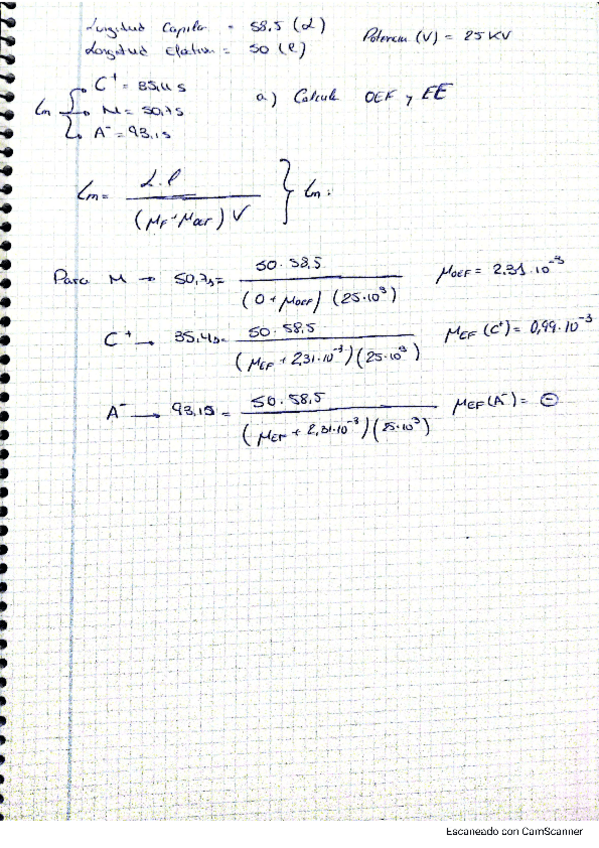 Longitud Capilar = 58,5 (L)
Longitud Efectiva = 50 (l)
Potencia (V) = 25 KV
tm
C⁺ = 35,4 s
M = 50,7 s
A⁻ = 93,1 s
a) Calcula OEF y EE
tm = L·l / (μEF + μOEF) V } tm:
Para M → 50,7s = 50·58,5 / (0 + μOEF) (25·10³) μOEF = 2,31·10⁻³
C⁺ → 35,4s = 50·58,5 / (μEF + 2,31·10⁻³)(25·10³) μEF (C⁺) = 0,99·10⁻³
A⁻ → 93,1s = 50·58,5 / (μEF + 2,31·10⁻³)(25·10³) μEF(A⁻) = ⊖
Escaneado con CamScanner